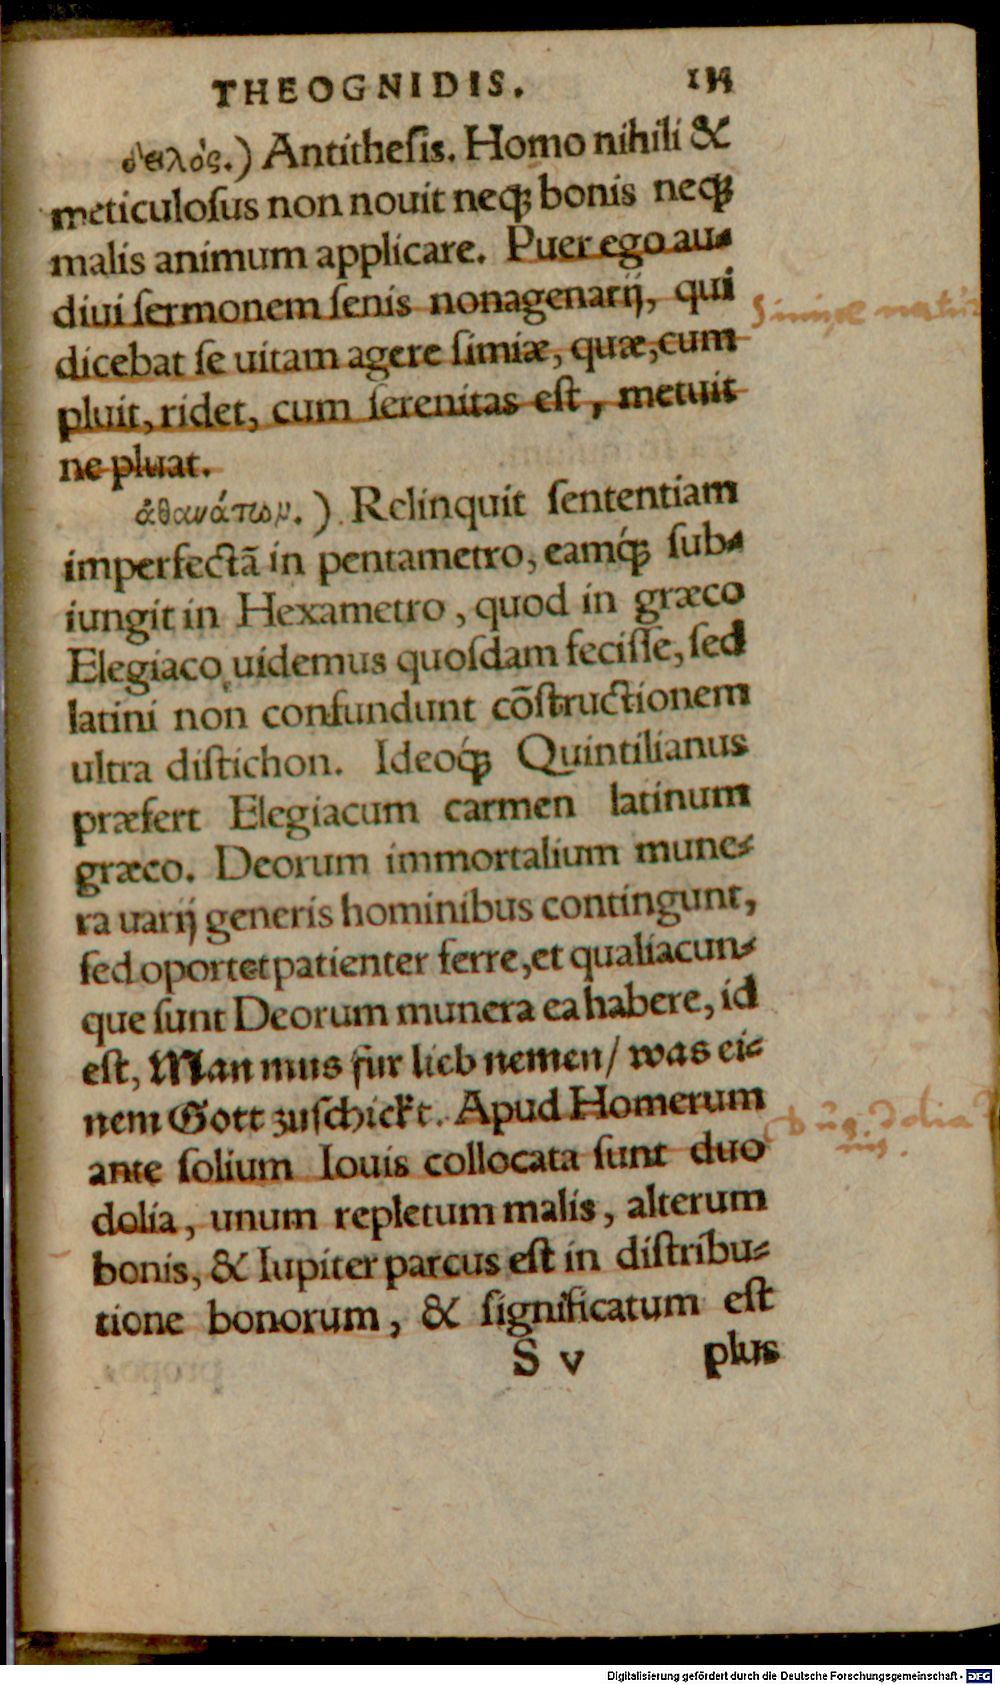 THEOGNIDIS.
δειλός.) Antitheſis. Homo nihili &
meticuloſus non nouit neq; bonis neq;
malis animum applicare. Puer ego au⸗
diui ſermonem ſenis nonagenarij, qui
Simiæ natur
dicebat ſe uitam agere ſimiæ, quæ, cum
pluit, ridet, cum ſerenitas eſt, metuit
ne pluat.
ἀθανάτων.) Relinquit ſententiam
imperfectā in pentametro, eamq́; ſub⸗
iungit in Hexametro, quod in græco
Elegiaco uidemus quoſdam feciſſe, ſed
latini non confundunt cōſtructionem
ultra diſtichon. Ideoq́; Quintilianus
præfert Elegiacum carmen latinum
græco. Deorum immortalium mune⸗
ra uarij generis hominibus contingunt,
ſed oportet patienter ferre, et qualiacun⸗
que ſunt Deorum munera ea habere, id
eſt, Man mus fur lieb nemen/ was ei⸗
nem Gott zuſchickt. Apud Homerum
dolia
ante ſolium Iouis collocata ſunt duo
dolia, unum repletum malis, alterum
bonis, & Iupiter parcus eſt in diſtribu⸗
tione bonorum, & ſignificatum eſt
S v plus
Digitalisierung gefördert durch die Deutsche Forschungsgemeinschaft - DFG